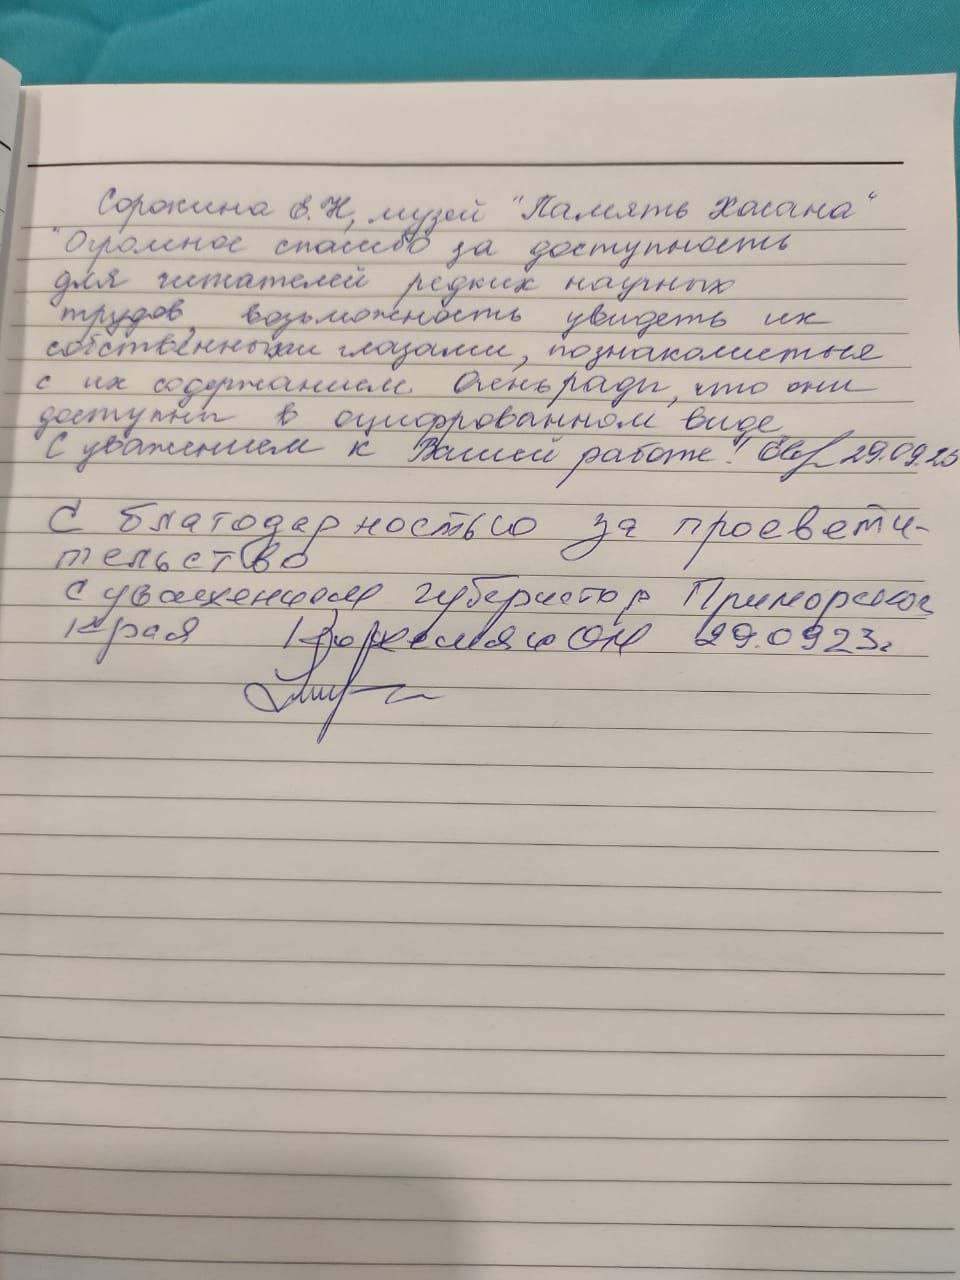 Сорокина Е.Н, музей "Память Хасана"
"Огромное спасибо за доступность
для читателей редких научных
трудов, возможность увидеть их
собственными глазами, познакомиться
с их содержанием. Очень рады, что они
доступны в оцифрованном виде
С уважением к Вашей работе! 29.09.23
С благодарностью за просвети-
тельство
С уважением губернатор Приморского
края Кожемяко ОН 29.0923г